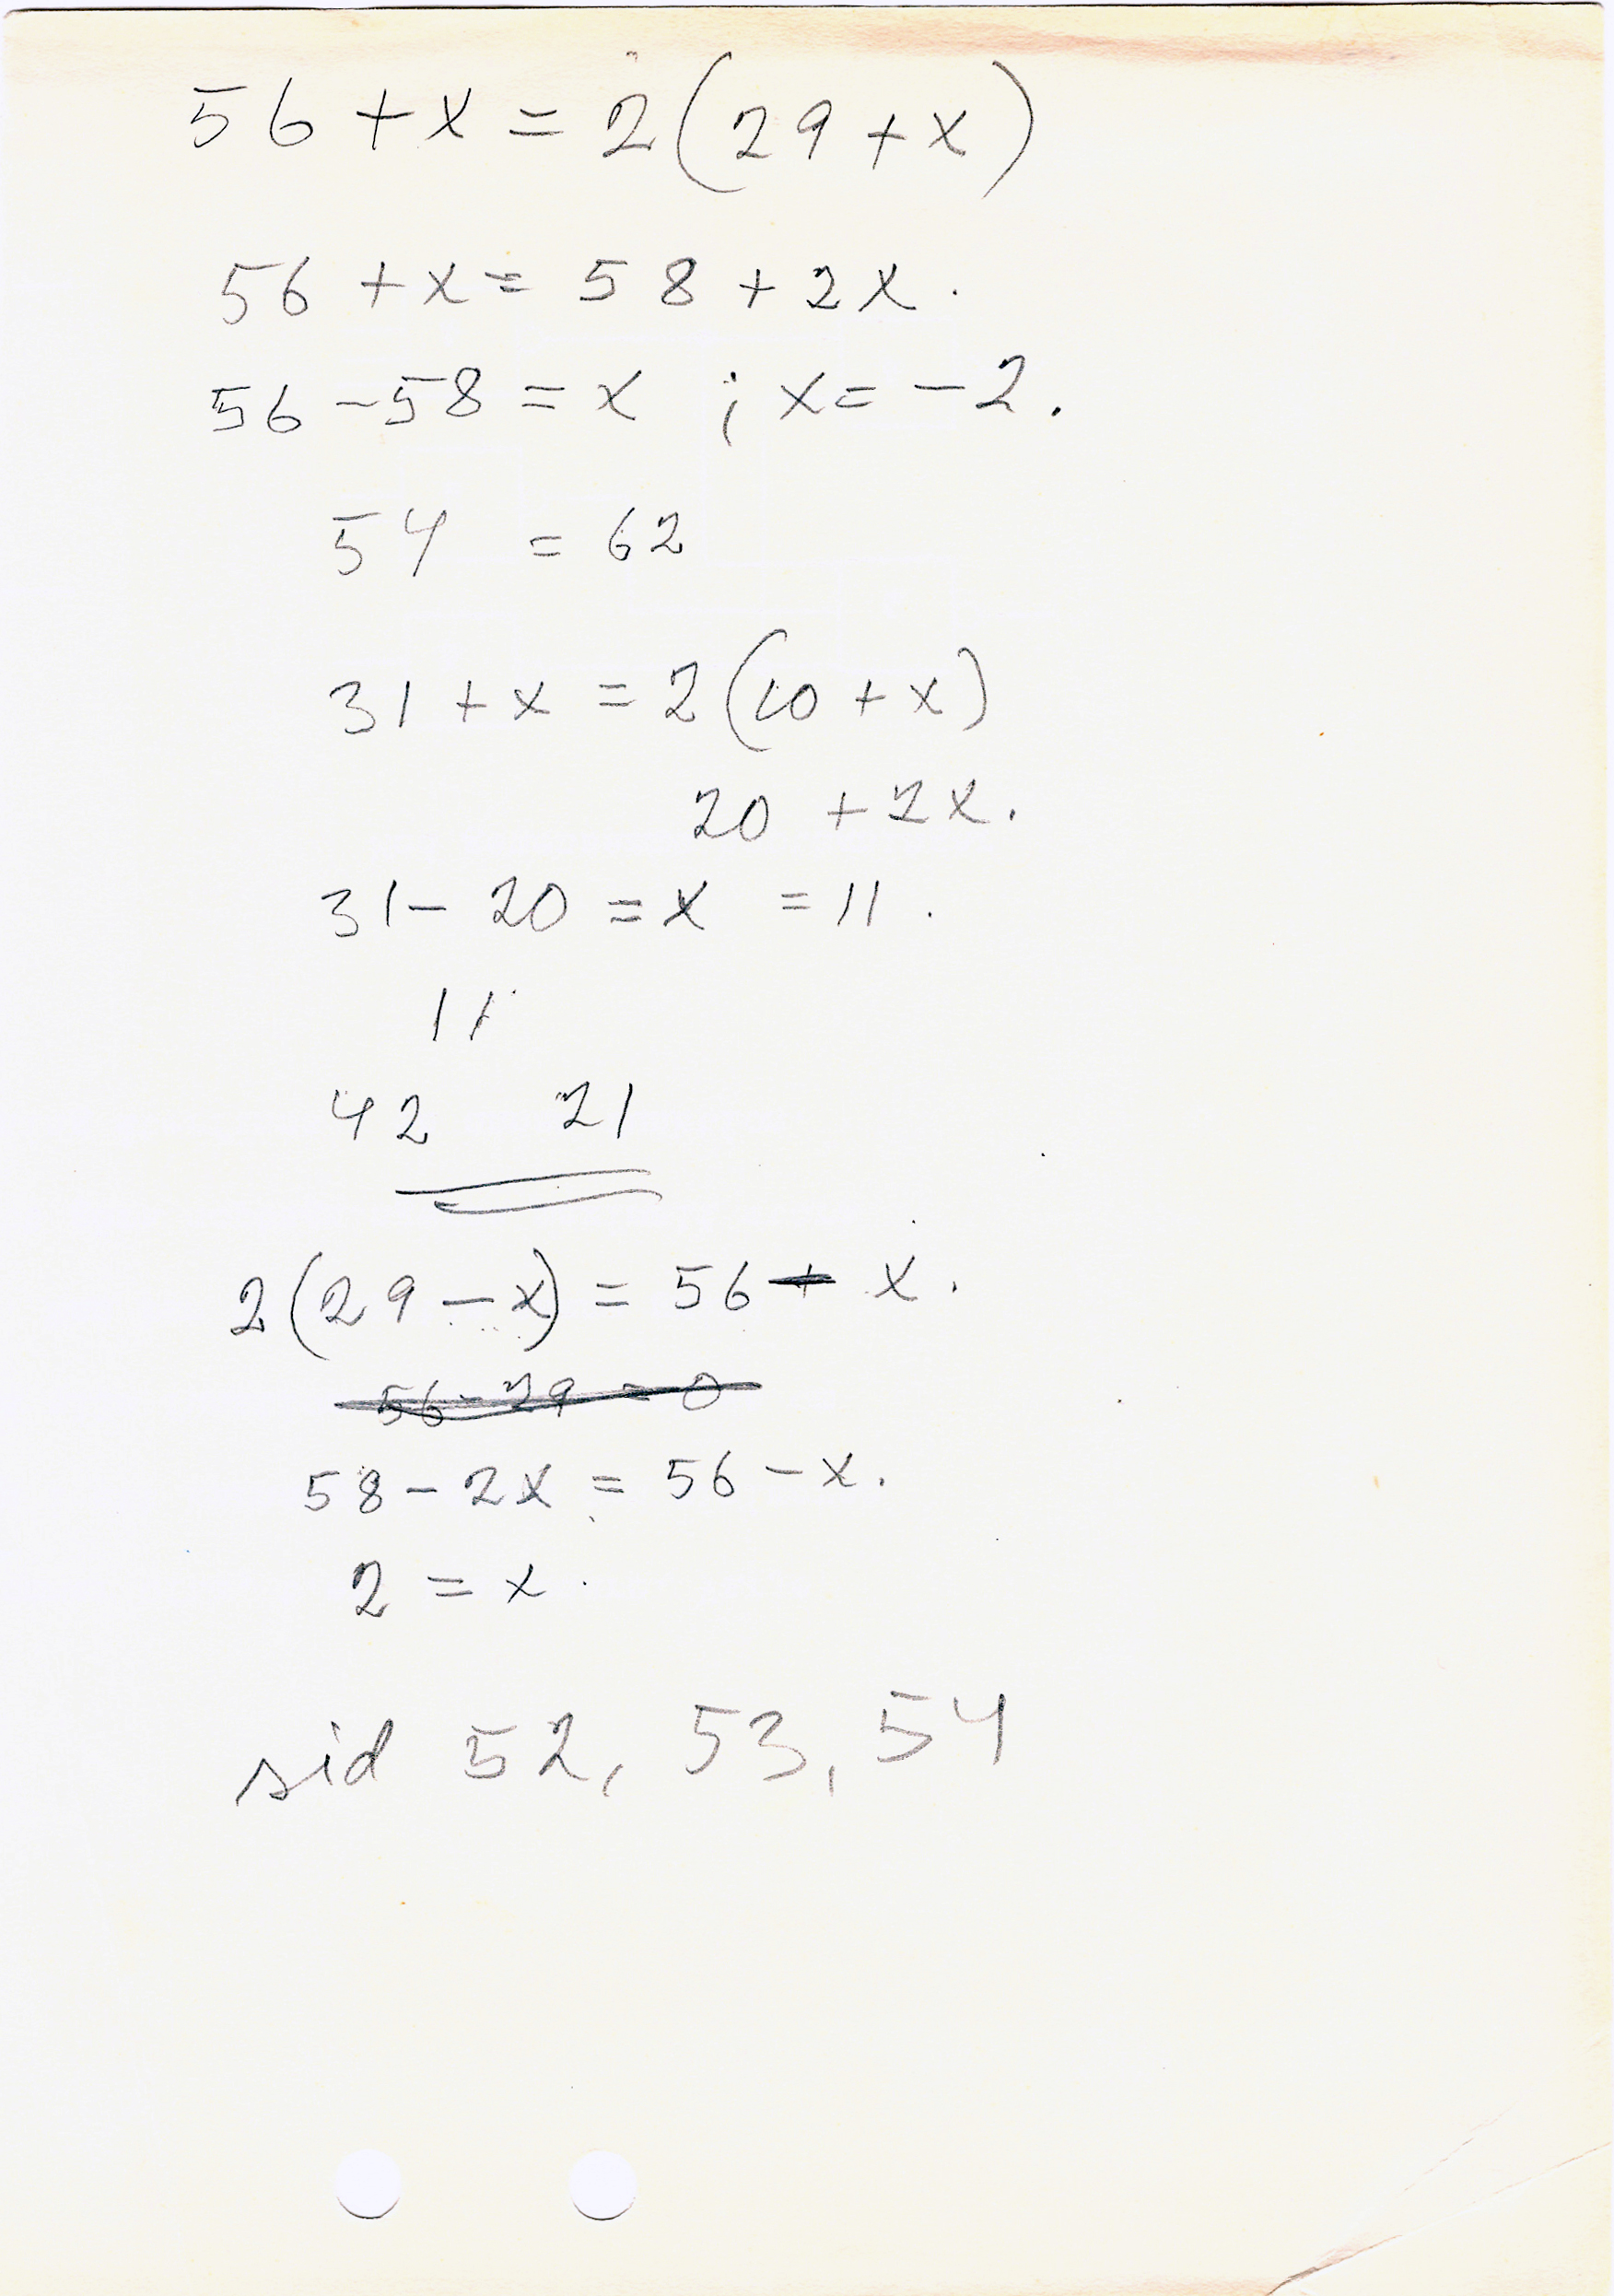 56 + x = 2(29 + x)
56 + x = 58 + 2x.
56 - 58 = x ; x = -2.
54 = 62
31 + x = 2(10 + x)
20 + 2x.
31 - 20 = x = 11.
11
42 21
2(29 - x) = 56 - x.
56 - 29 = 0
58 - 2x = 56 - x.
2 = x.
sid 52, 53, 54